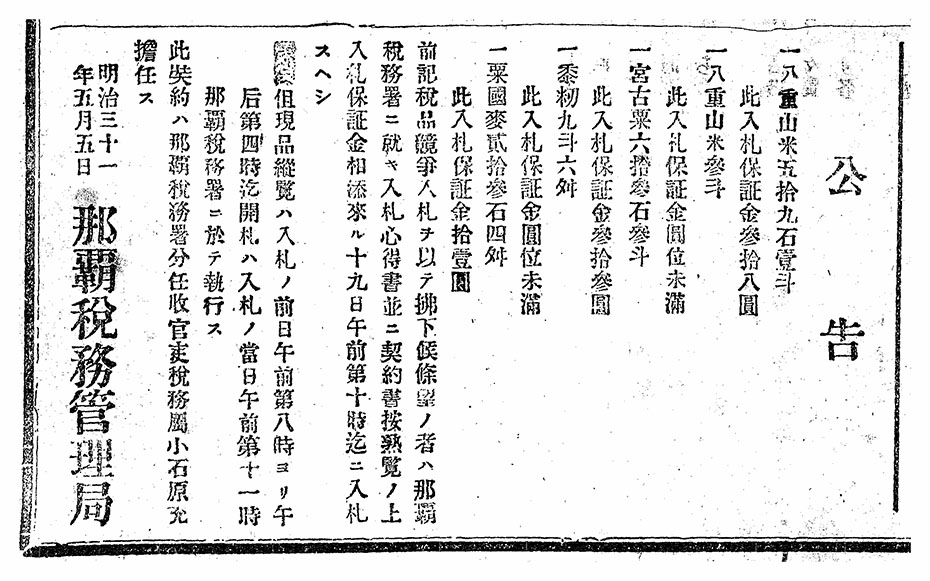 公告
一八重山米五拾九石壹斗
此入札保証金參拾八圓
一八重山米參斗
此入札保証金圓位未滿
一宮古粟六拾參石參斗
此入札保証金參拾參圓
一黍籾九斗六舛
此入札保証金圓位未滿
一粟國麥貳拾參石四舛
此入札保証金拾壹圓
前記税品競爭入札ヲ以テ拂下候條望ノ者ハ那覇
税務署ニ就キ入札心得書並ニ契約書按熟覽ノ上
入札保証金相添來ル十九日午前第十時迄ニ入札
スヘシ
但現品縱覽ハ入札ノ前日午前第八時ヨリ午
后第四時迄開札ハ入札ノ當日午前第十一時
那覇税務署ニ於テ執行ス
此契約ハ那覇税務署分任收官吏税務屬小石原充
擔任ス
明治三十一
年五月五日
那覇税務管理局